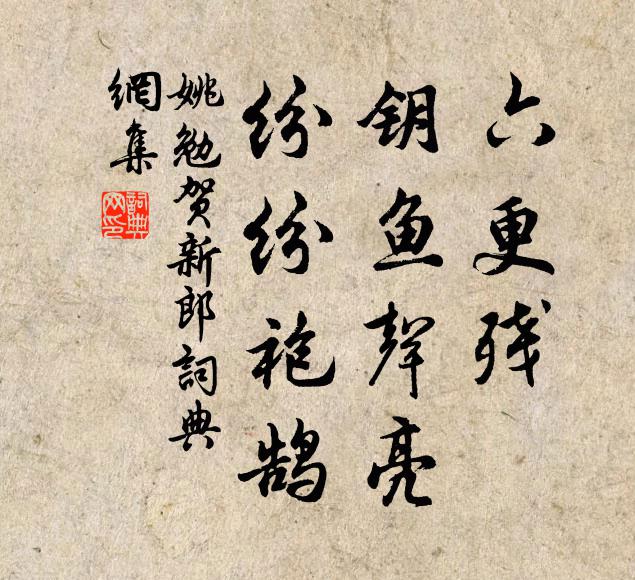 六更残
钥鱼声亮
纷纷袍鹄
姚勉贺新郎詞典
網集
詞典
网印